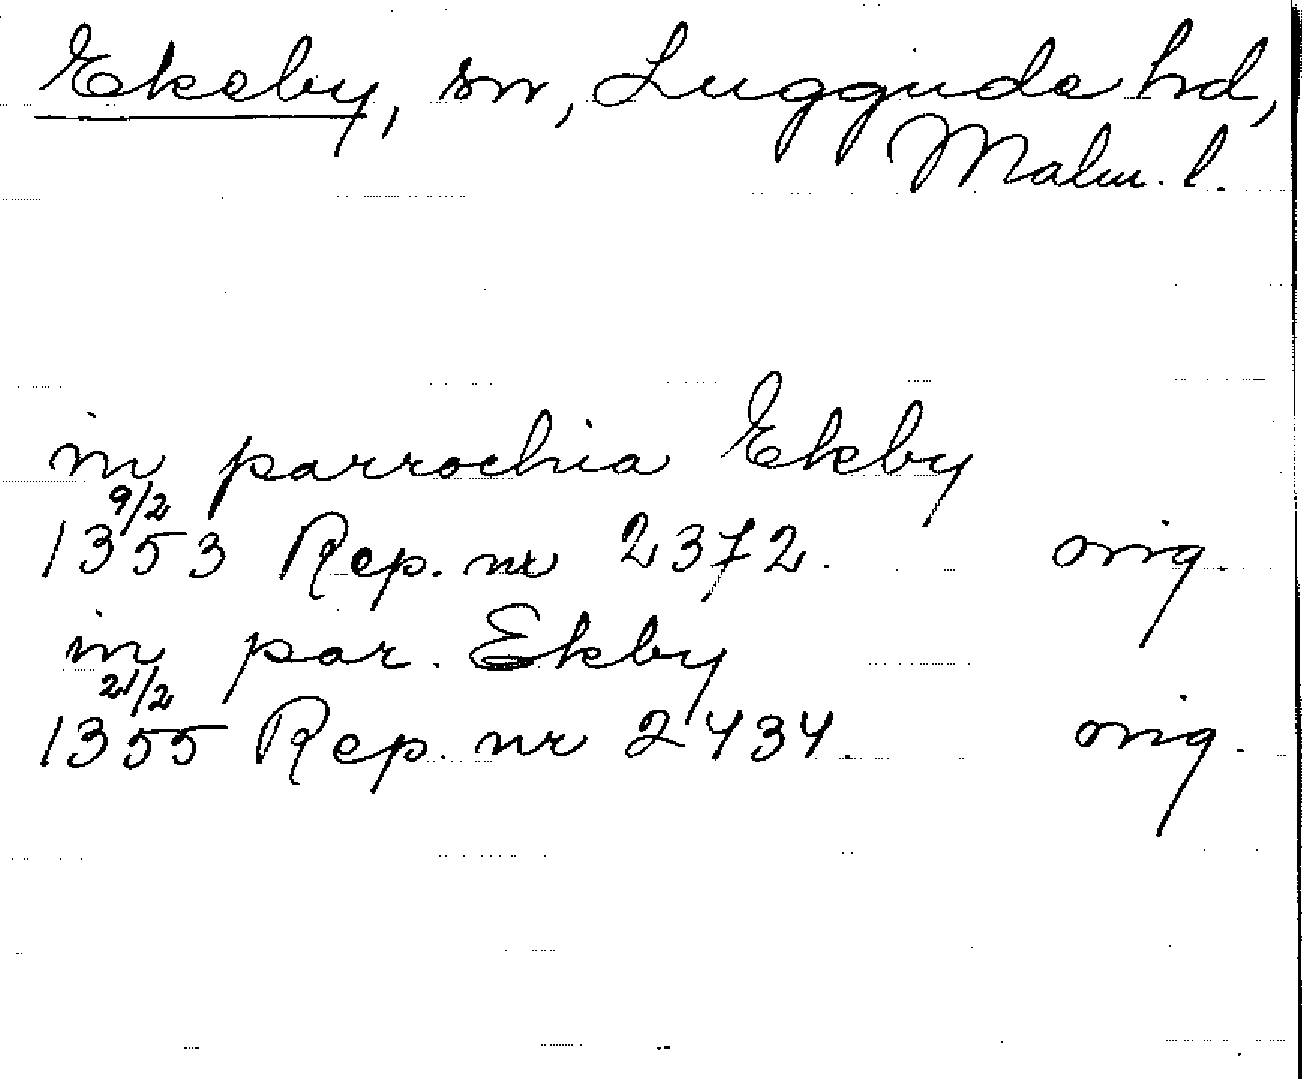 Ekeby, sn, Luggude hd,
Malm. l.
in parrochia Ekby
9/2
1353 Rep. nr 2372. orig.
in par. Ekby
21/2
1355 Rep. nr 2434. orig.